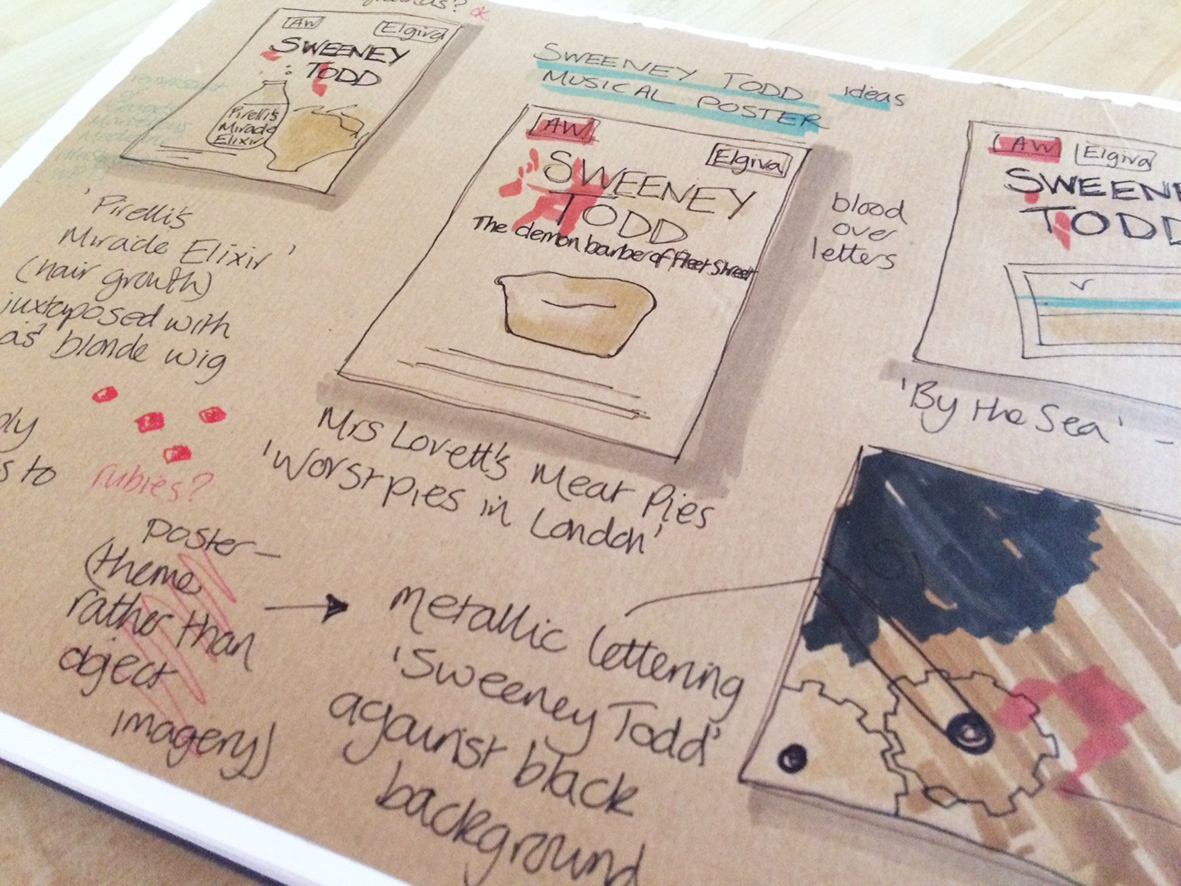 ok
AW
Elgiva
SWEENEY
TODD
Pirelli's
Miracle
Elixir
'Pirelli's
Miracle Elixir'
(hair growth)
juxtaposed with
as blonde wig
rubies?
SWEENEY TODD ideas
MUSICAL POSTER
AW
Elgiva
SWEENEY
TODD
The demon barber of Fleet Street
blood
over
letters
Mrs Lovett's Meat Pies
'Worst pies in London'
AW
Elgiva
SWEENE
TODD
'By the Sea' -
s to
poster -
(theme
rather than
object
imagery)
metallic lettering
'Sweeney Todd'
against black
background